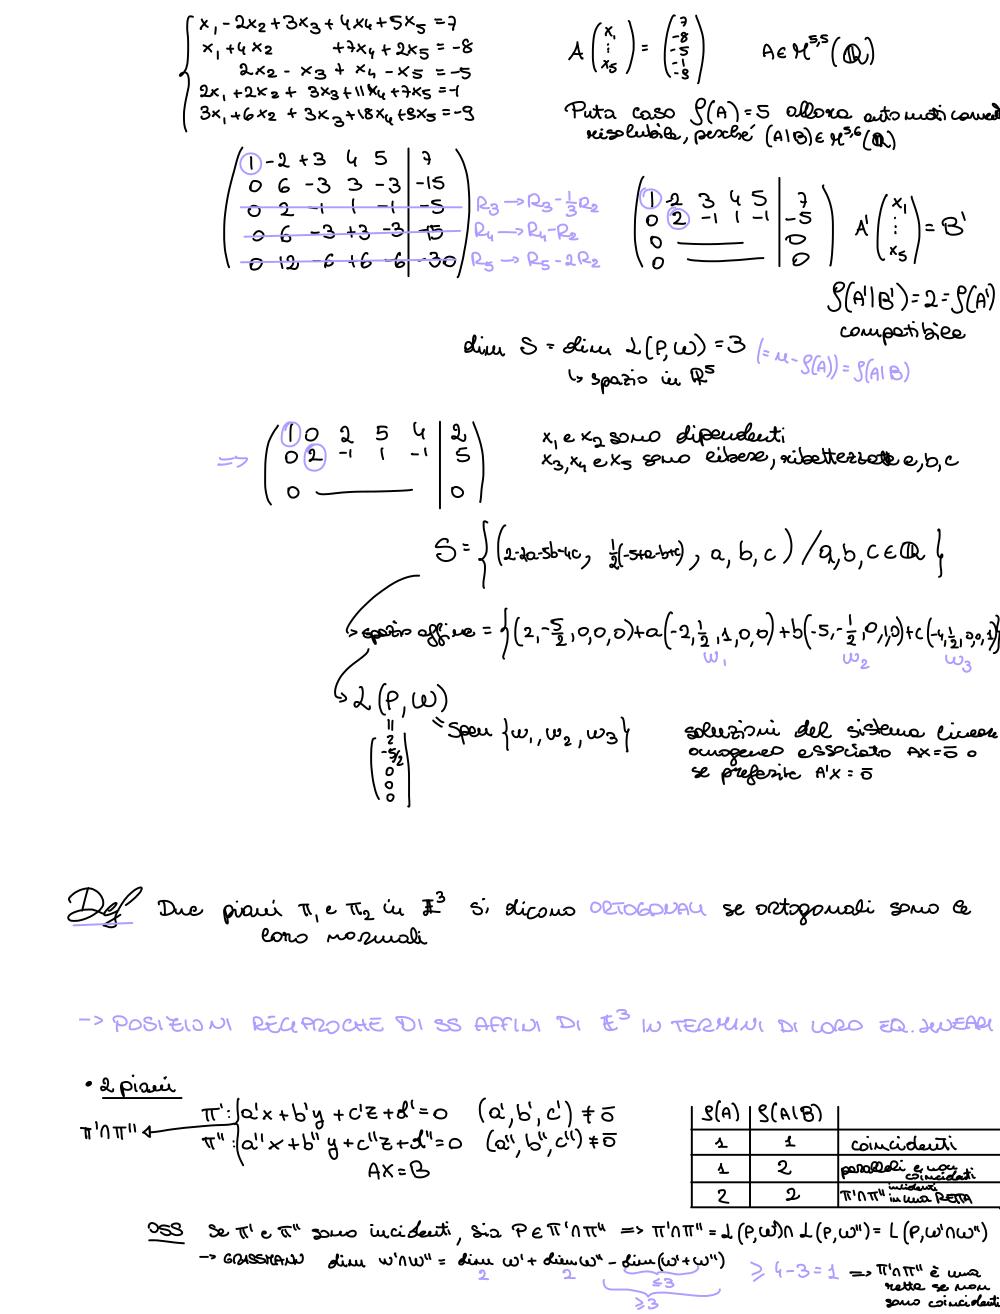 x₁ - 2x₂ + 3x₃ + 4x₄ + 5x₅ = 7
x₁ + 4x₂ + 7x₄ + 2x₅ = -8
2x₂ - x₃ + x₄ - x₅ = -5
2x₁ + 2x₂ + 3x₃ + 11x₄ + 7x₅ = -1
3x₁ + 6x₂ + 3x₃ + 18x₄ + 9x₅ = -9
A (x₁ ⋮ x₅) = (7 -8 -5 -1 -9) A ∈ M^{5,5}(ℝ)
Puta caso ρ(A) = 5 allora
risolubile, perché (A|B) ∈ M^{5,6}(ℝ)
1 -2 +3 4 5 | 7
0 6 -3 3 -3 | -15
0 2 -1 1 -1 | -5 R₃ → R₃ - 1/3 R₂
0 6 -3 +3 -3 | -15 R₄ → R₄ - R₂
0 12 -6 +6 -6 | -30 R₅ → R₅ - 2R₂
1 -2 3 4 5 | 7
0 2 -1 1 -1 | -5
0 — | 0
0 — | 0
A' (x₁ ⋮ x₅) = B'
ρ(A'|B') = 2 = ρ(A')
compatibile
dim S = dim L(P,W) = 3 (= n - ρ(A)) = ρ(A|B)
↳ spazio in ℝ⁵
⇒ 1 0 2 5 4 | 2
0 2 -1 1 -1 | 5
0 — | 0
x₁ e x₂ sono dipendenti
x₃, x₄ e x₅ sono libere, ribattezzate a, b, c
S = {(2-2a-5b-4c, 1/2(-5+a-b+c), a, b, c) / a, b, c ∈ ℝ}
↳ spazio affine = {(2, -5/2, 0, 0, 0) + a(-2, 1/2, 1, 0, 0) + b(-5, -1/2, 0, 1, 0) + c(-4, 1/2, 0, 0, 1)}
w₁ w₂ w₃
↳ L(P, W)
= Span {w₁, w₂, w₃}
= (2 -5/2 0 0 0)
soluzioni del sistema lineare
omogeneo associato AX = 0̄ o
se preferite A'X = 0̄
Def Due piani π₁ e π₂ in E³ si dicono ORTOGONALI se ortogonali sono le
loro normali
-> POSIZIONI RECIPROCHE DI SS AFFINI DI E³ IN TERMINI DI LORO EQ. LINEARI
• 2 piani
π': a'x + b'y + c'z + d' = 0 (a', b', c') ≠ 0̄
π'∩π''
π'': a''x + b''y + c''z + d'' = 0 (a'', b'', c'') ≠ 0̄
AX = B
ρ(A) ρ(A|B)
1 1 coincidenti
1 2 paralleli e non coincidenti
2 2 π'∩π'' incidenti in una RETTA
OSS Se π' e π'' sono incidenti, sia P ∈ π'∩π'' => π'∩π'' = L(P,W') ∩ L(P,W'') = L(P, W'∩W'')
-> GRASSMANN dim W'∩W'' = dim W' + dim W'' - dim(W'+W'') ≥ 4-3 = 1 => π'∩π'' è una
2 2 ≤3
retta se non
≥3
sono coincidenti